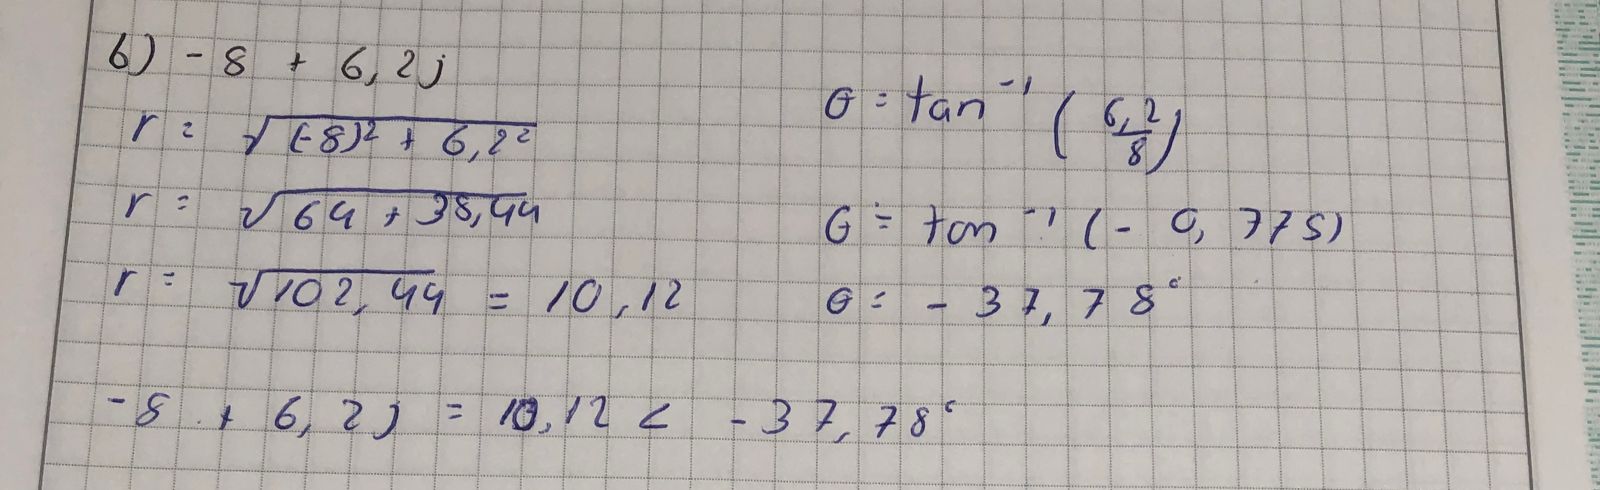 b) - 8 + 6,2j
r = √((-8)² + 6,2²)
r = √(64 + 38,44)
r = √(102,44) = 10,12
θ = tan⁻¹ (6,2/8)
θ = tan⁻¹ (- 0,775)
θ = - 37,78°
-8 + 6,2j = 10,12 < - 37,78°